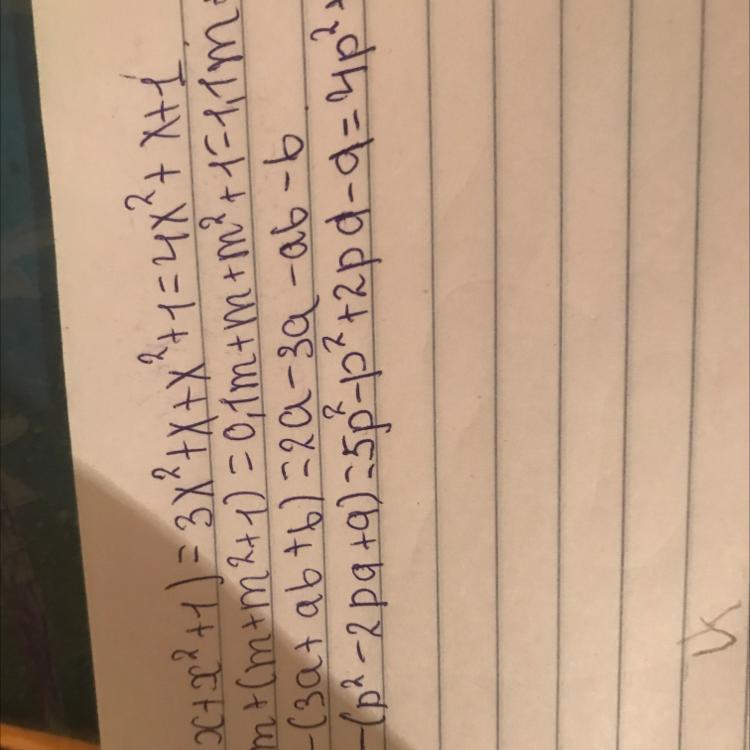 x+x²+1)=3x²+x+x²+1=4x²+x+1
m+(m+m²+1)=0,1m+m+m²+1=1,1m+
-(3a+ab+b)=2a-3a-ab-b
-(p²-2pq+q)=5p²-p²+2pq-q=4p²+